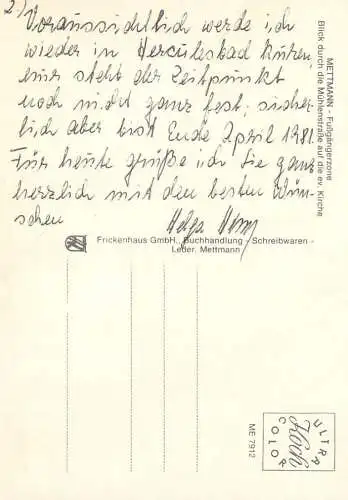 2./
Voraussichtlich werde ich
wieder in Herculesbad kuren
nur steht der Zeitpunkt
noch nicht ganz fest, sicher
lich aber erst Ende April 1981.
Für heute grüße ich Sie ganz
herzlich mit den besten Wün-
schen
Helga
Frickenhaus GmbH., Buchhandlung - Schreibwaren -
Leder, Mettmann
METTMANN - Fußgängerzone
Blick durch die Mühlenstraße auf die ev. Kirche
ME 7912
ULTRA
Koch
COLOR